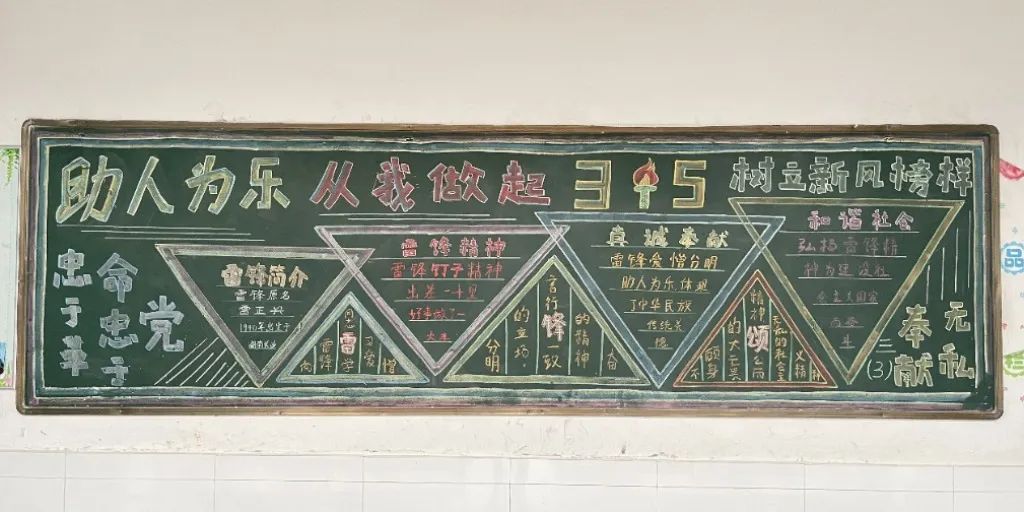 助人为乐 从我做起 3 5 树立新风榜样
忠于革
命忠于
党
雷锋简介
雷锋原名
雷正兴
1940年出生于
湖南长沙
向雷锋
雷
同志学
习爱憎
雷锋精神
雷锋钉子精神
出差一千里
好事做了一
火车
分明
的立场
言行
锋
一致
的精神
奋
真诚奉献
雷锋爱憎分明
助人为乐,体现
了中华民族
传统美
德
不顾身
的大无畏
精神
颂
无私的
义精神
和谐社会
弘扬雷锋精
神为建设社
会主义国家
而奋
斗
二(3)
奉献
无私